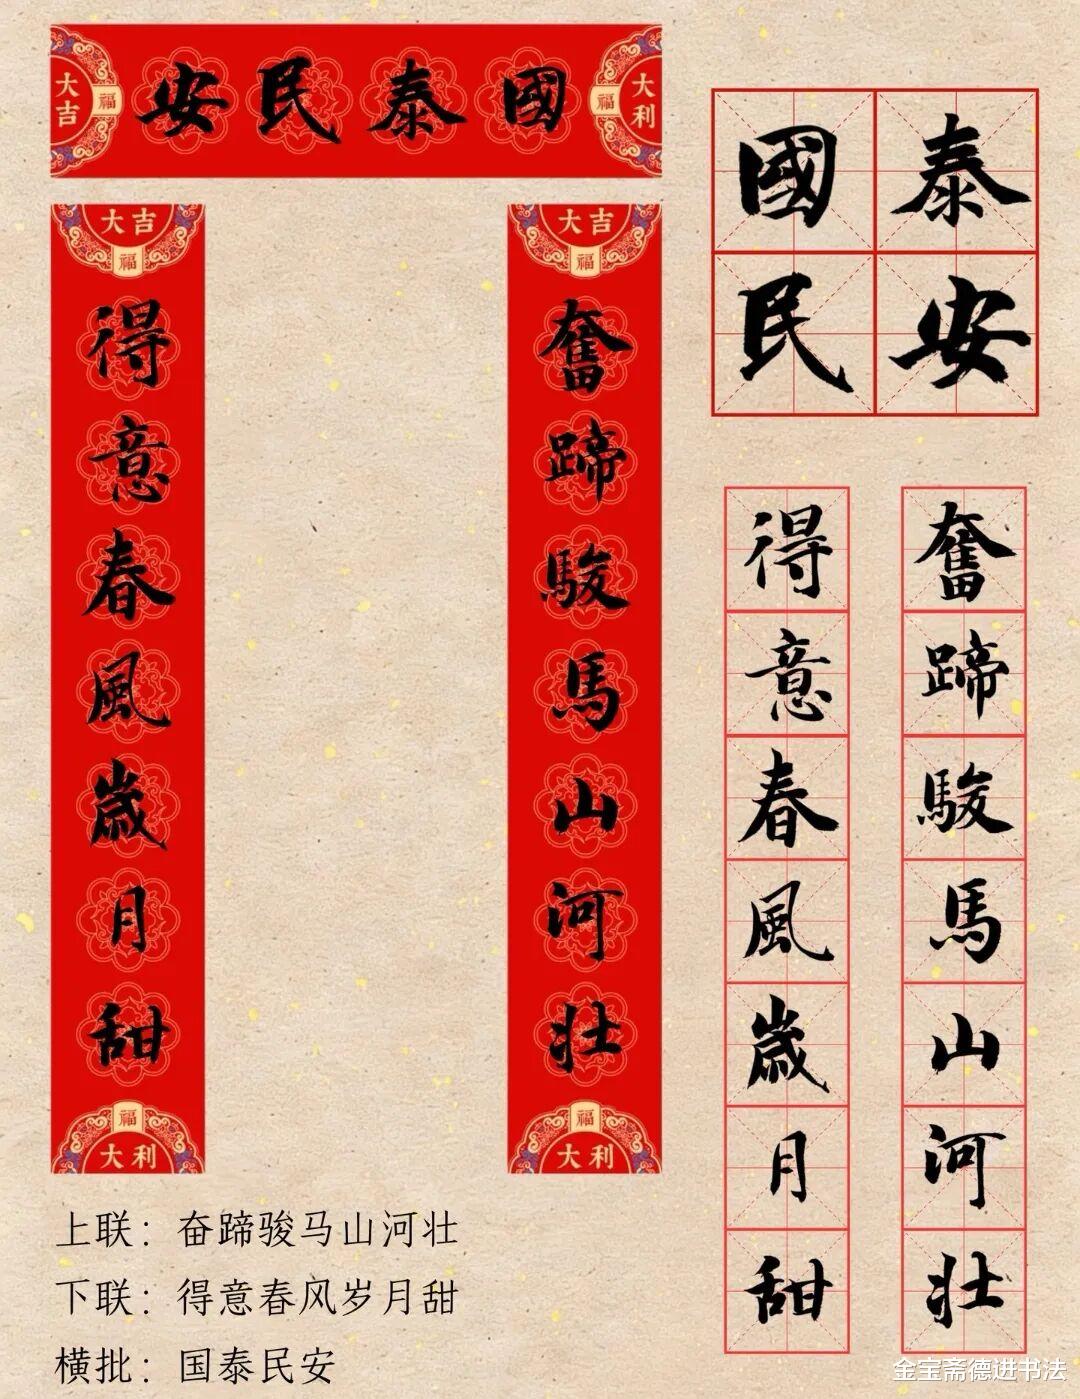 大吉
福
安民泰國
福
大利
大吉
福
得意春風歲月甜
福
大利
大吉
福
奮蹄駿馬山河壯
福
大利
國泰
民安
得意春風歲月甜
奮蹄駿馬山河壯
上联：奋蹄骏马山河壮
下联：得意春风岁月甜
横批：国泰民安
金宝斋德进书法